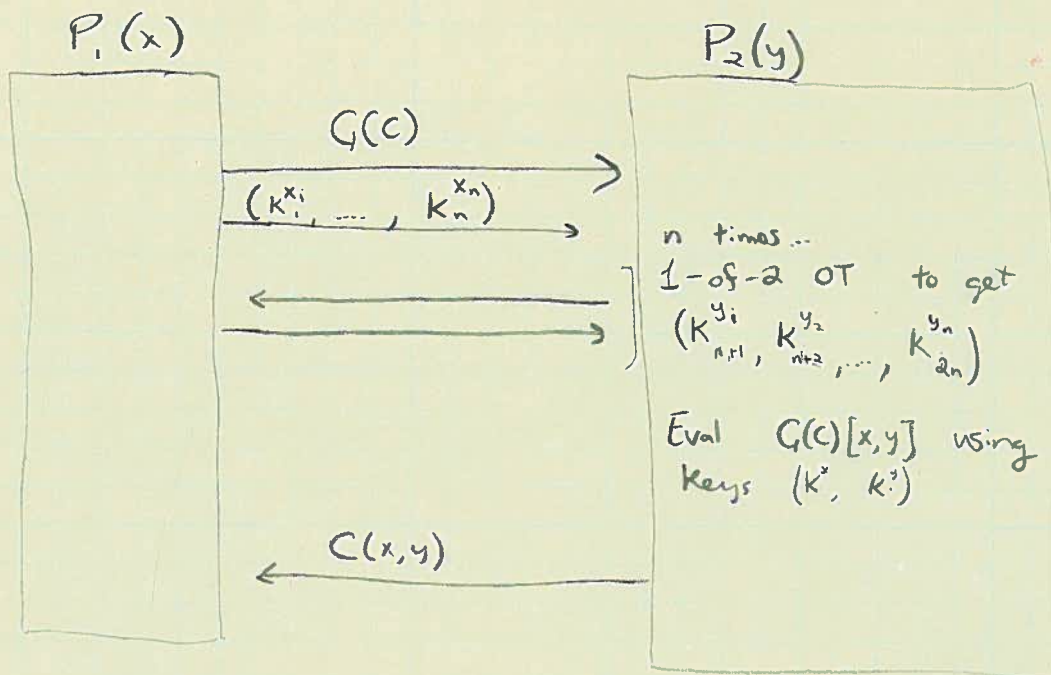 P₁(x)
P₂(y)
G(C)
(k₁^{x_i}, ...., k_n^{x_n})
n times...
1-of-2 OT to get
(k_{n+1}^{y_i}, k_{n+2}^{y_2}, ..., k_{2n}^{y_n})
Eval G(C)[x,y] using
keys (k^x, k^y)
C(x,y)